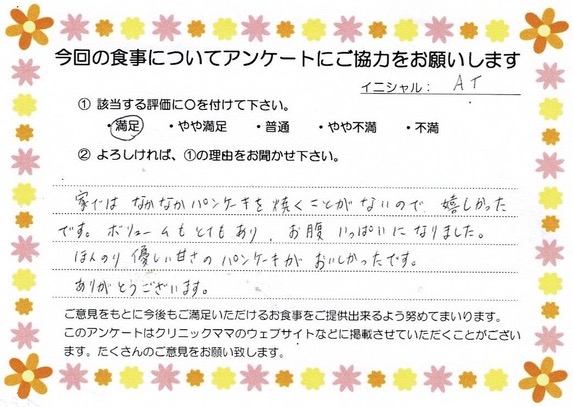 今回の食事についてアンケートにご協力をお願いします
イニシャル： AT
① 該当する評価に○を付けて下さい。
・満足 ・やや満足 ・普通 ・やや不満 ・不満
② よろしければ、①の理由をお聞かせ下さい。
家では なかなかパンケーキを焼くことがないので、嬉しかった
です。ボリュームもとてもあり、お腹いっぱいになりました。
ほんのり優しい甘さのパンケーキがおいしかったです。
ありがとうございます。
ご意見をもとに今後もご満足いただけるお食事をご提供出来るよう努めてまいります。
このアンケートはクリニックママのウェブサイトなどに掲載させていただくことがござい
ます。たくさんのご意見をお願い致します。